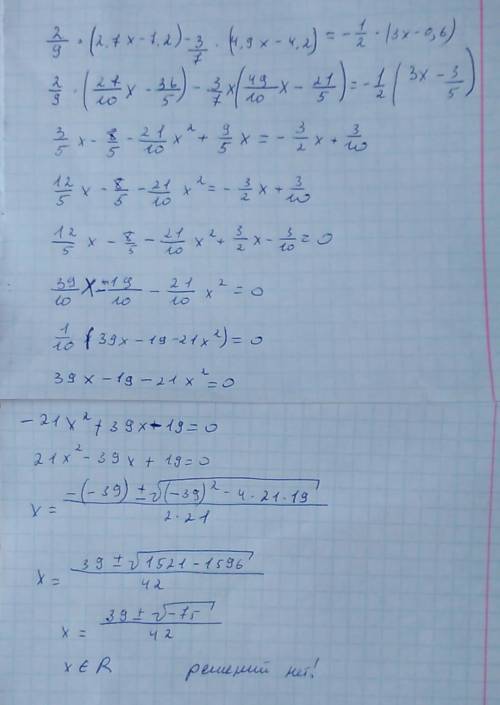 2/9 · (2,7x-7,2) - 3/7 · (4,9x-4,2) = -1/2 · (3x-0,6)
2/9 · (27/10 x - 36/5) - 3/7 x (49/10 x - 21/5) = -1/2 (3x - 3/5)
3/5 x - 8/5 - 21/10 x² + 9/5 x = -3/2 x + 3/10
12/5 x - 8/5 - 21/10 x² = -3/2 x + 3/10
12/5 x - 8/5 - 21/10 x² + 3/2 x - 3/10 = 0
39/10 x - 19/10 - 21/10 x² = 0
1/10 (39x-19-21x²) = 0
39x-19-21x² = 0
-21x² + 39x - 19 = 0
21x² - 39x + 19 = 0
x = (-(-39) ± √((-39)² - 4·21·19)) / (2·21)
x = (39 ± √(1521-1596)) / 42
x = (39 ± √(-75)) / 42
x ∈ R решений нет!